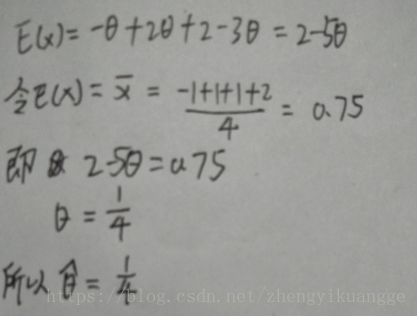 E(x)=-θ+2θ+2-3θ=2-5θ
令E(x)=x̄=(-1+1+1+2)/4=0.75
即 2-5θ=0.75
θ=1/4
所以 θ̂=1/4
https://blog.csdn.net/zhengyikuangge